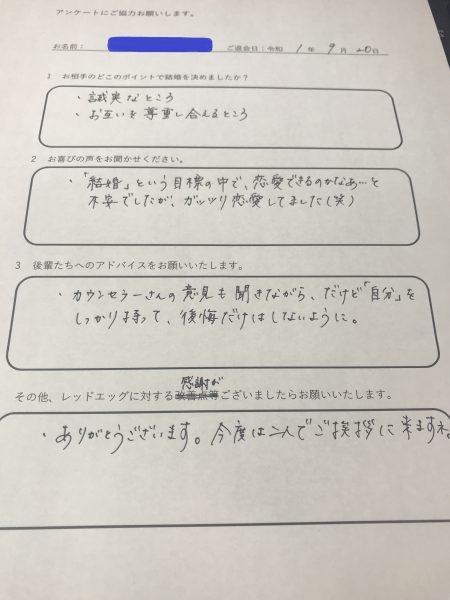 アンケートにご協力お願いします。
お名前： ご退会日：令和 1 年 9 月 20 日
1 お相手のどこのポイントで結婚を決めましたか？
・誠実なところ
・お互いを尊重し合えるところ
2 お喜びの声をお聞かせください。
・「結婚」という目標の中で、恋愛できるのかなあ…と
不安でしたが、ガッツリ恋愛してました(笑)
3 後輩たちへのアドバイスをお願いいたします。
・カウンセラーさんの意見も聞きながら、だけど「自分」を
しっかり持って、後悔だけはしないように。
感謝が
その他、レッドエッグに対する改善点等ございましたらお願いいたします。
・ありがとうございます。今度は二人でご挨拶に来ますネ。